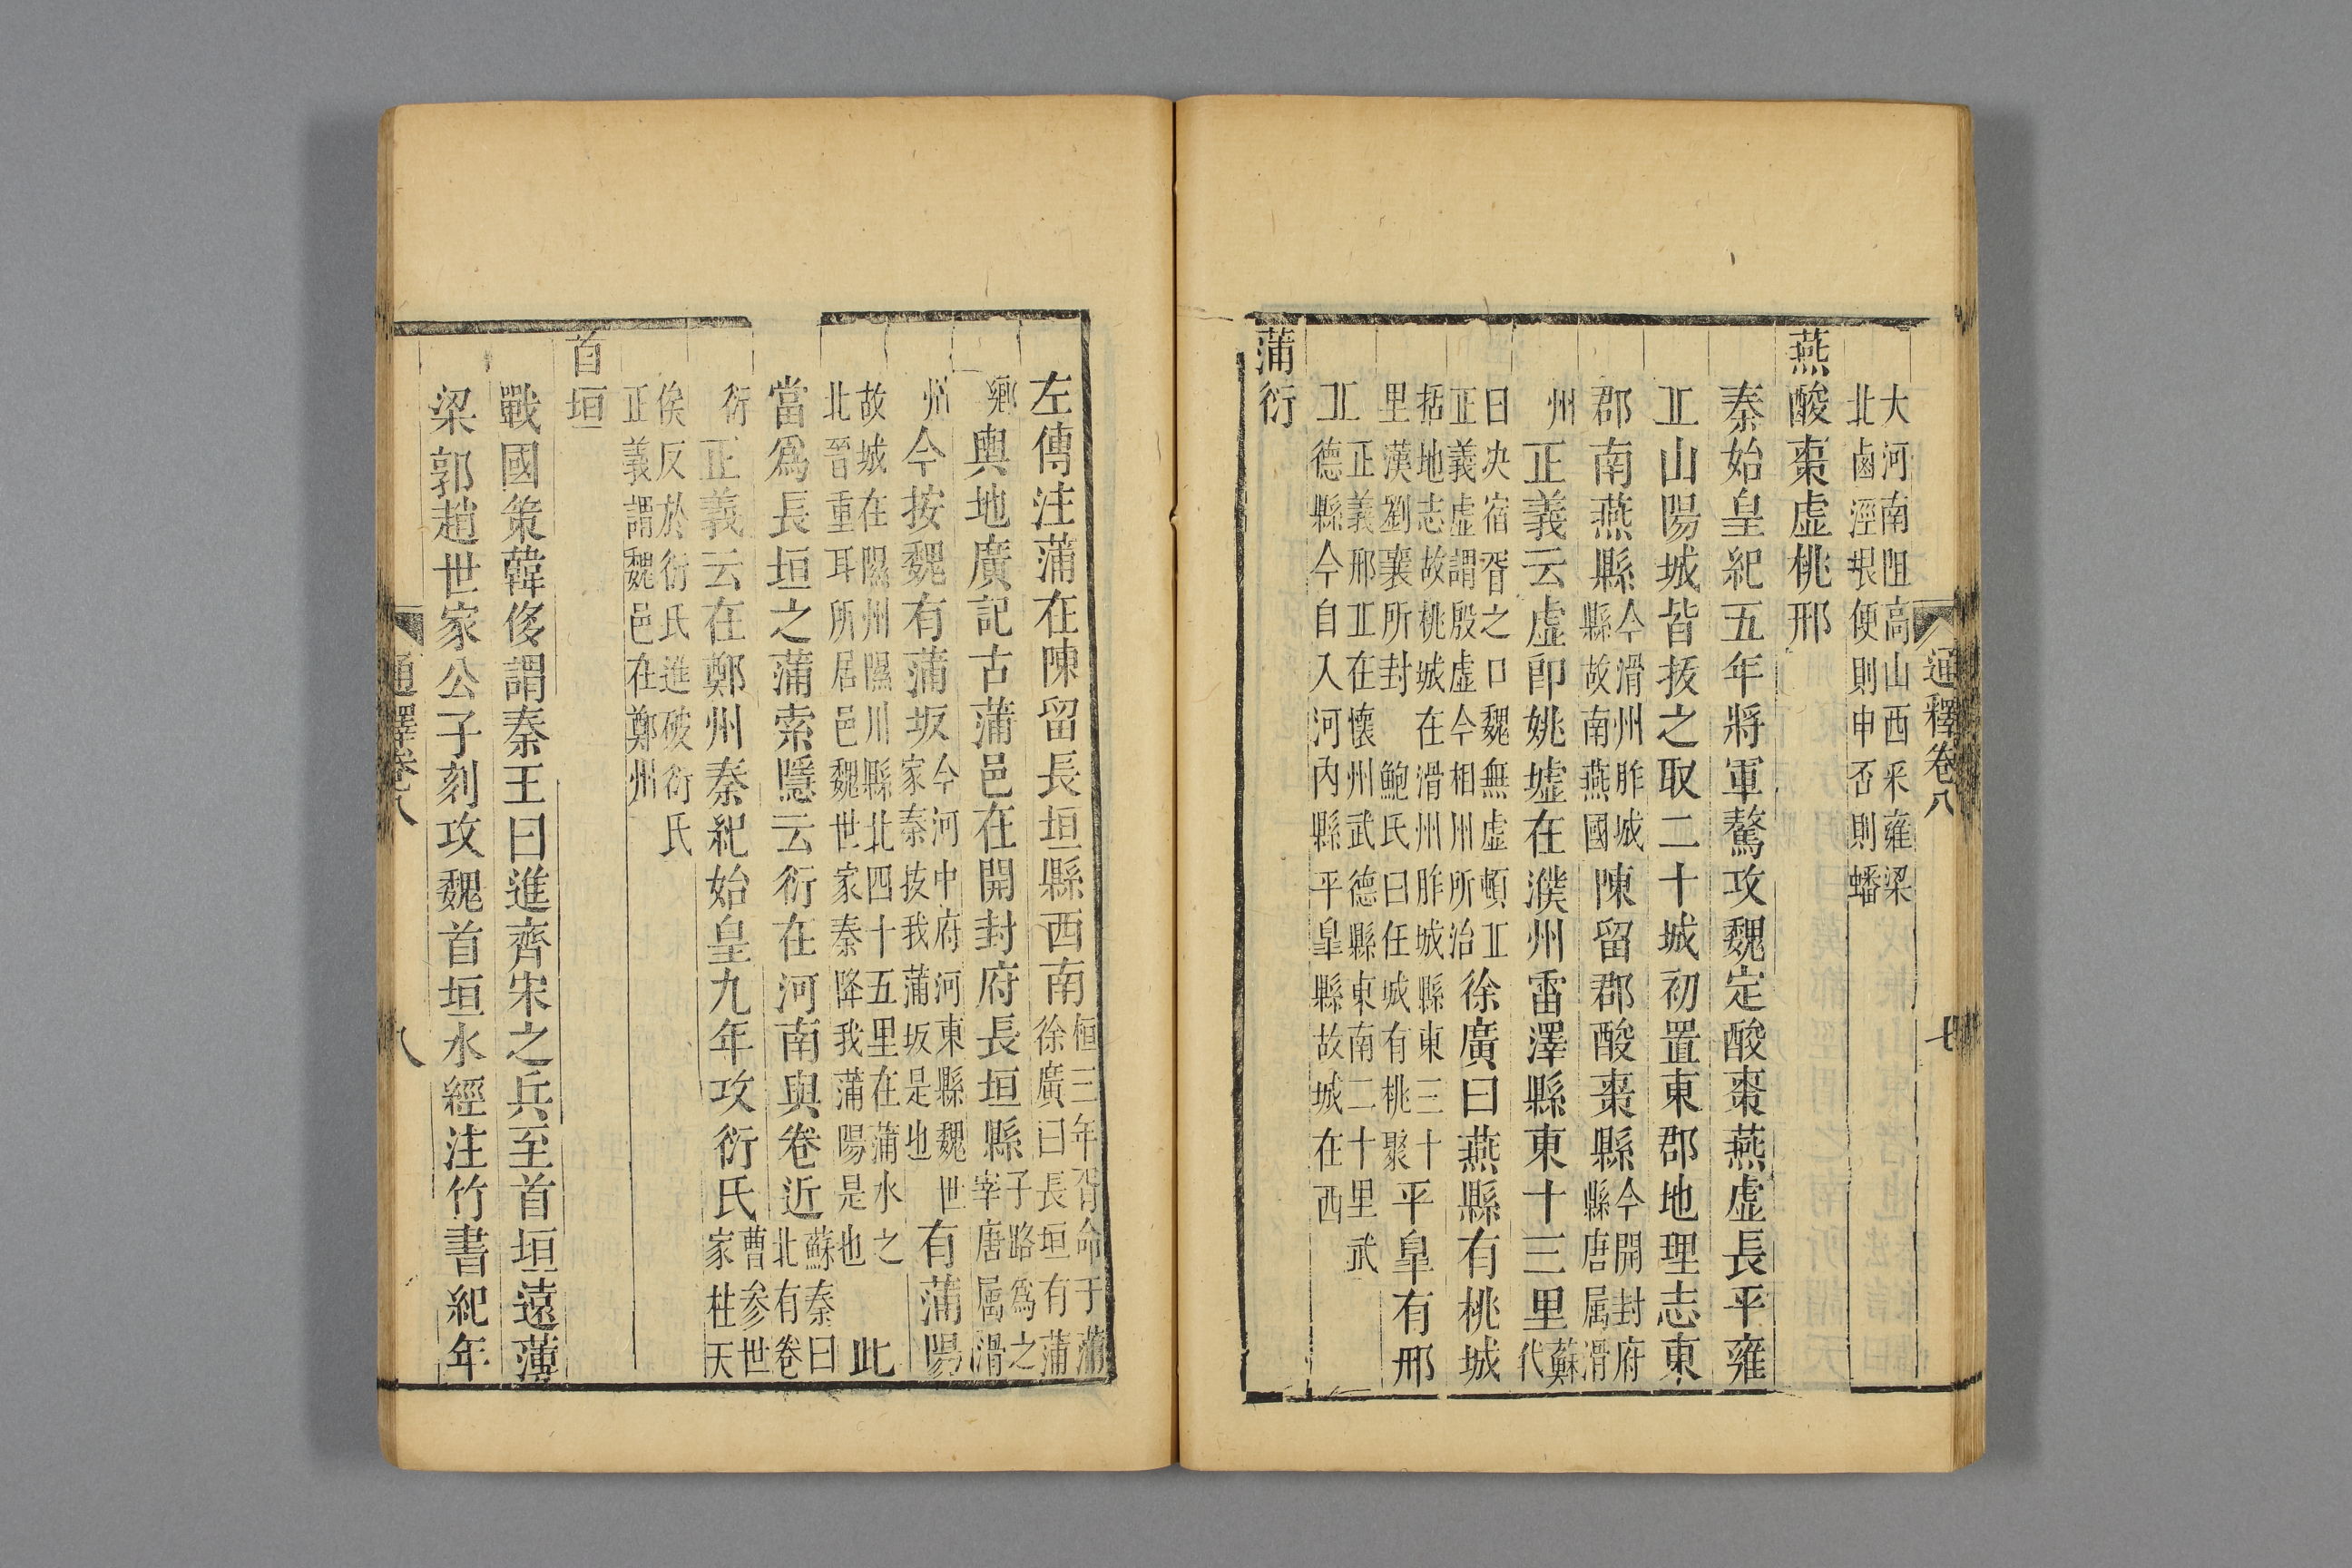 通釋卷八
七
大河南阻高山西釆雍梁
北鹵涇垠便則申否則蟠
燕酸棗虛桃邢
秦始皇紀五年將軍驁攻魏定酸棗燕虛長平雍
丠山陽城皆拔之取二十城初置東郡地理志東
郡南燕縣今滑州胙城縣故南燕國陳留郡酸棗縣今開封府縣唐屬滑
州正義云虛卽姚墟在濮州雷澤縣東十三里蘇代
曰決宿胥之口魏無虛頓丠正義虛謂殷虛今相州所治徐廣曰燕縣有桃城
括地志故桃城在滑州胙城縣東三十里漢劉襄所封鮑氏曰任城有桃聚平臯有邢
丠正義邢丠在懷州武德縣東南二十里武德縣今自入河內縣平臯縣故城在西
蒲衍
左傳注蒲在陳留長垣縣西南桓三年胥命于蒲徐廣曰長垣有蒲
鄉輿地廣記古蒲邑在開封府長垣縣子路爲之宰唐屬滑
州今按魏有蒲坂今河中府河東縣魏世家秦拔我蒲坂是也有蒲陽
故城在隰州隰川縣北四十五里在蒲水之北晉重耳所居邑魏世家秦降我蒲陽是也此
當爲長垣之蒲索隱云衍在河南與卷近蘇秦曰北有卷
衍正義云在鄭州秦紀始皇九年攻衍氏曹參世家柱天
侯反於衍氏進破衍氏正義謂魏邑在鄭州
首垣
戰國策韓侈謂秦王曰進齊宋之兵至首垣遠薄
梁郭趙世家公子刻攻魏首垣水經注竹書紀年
通釋卷八
八